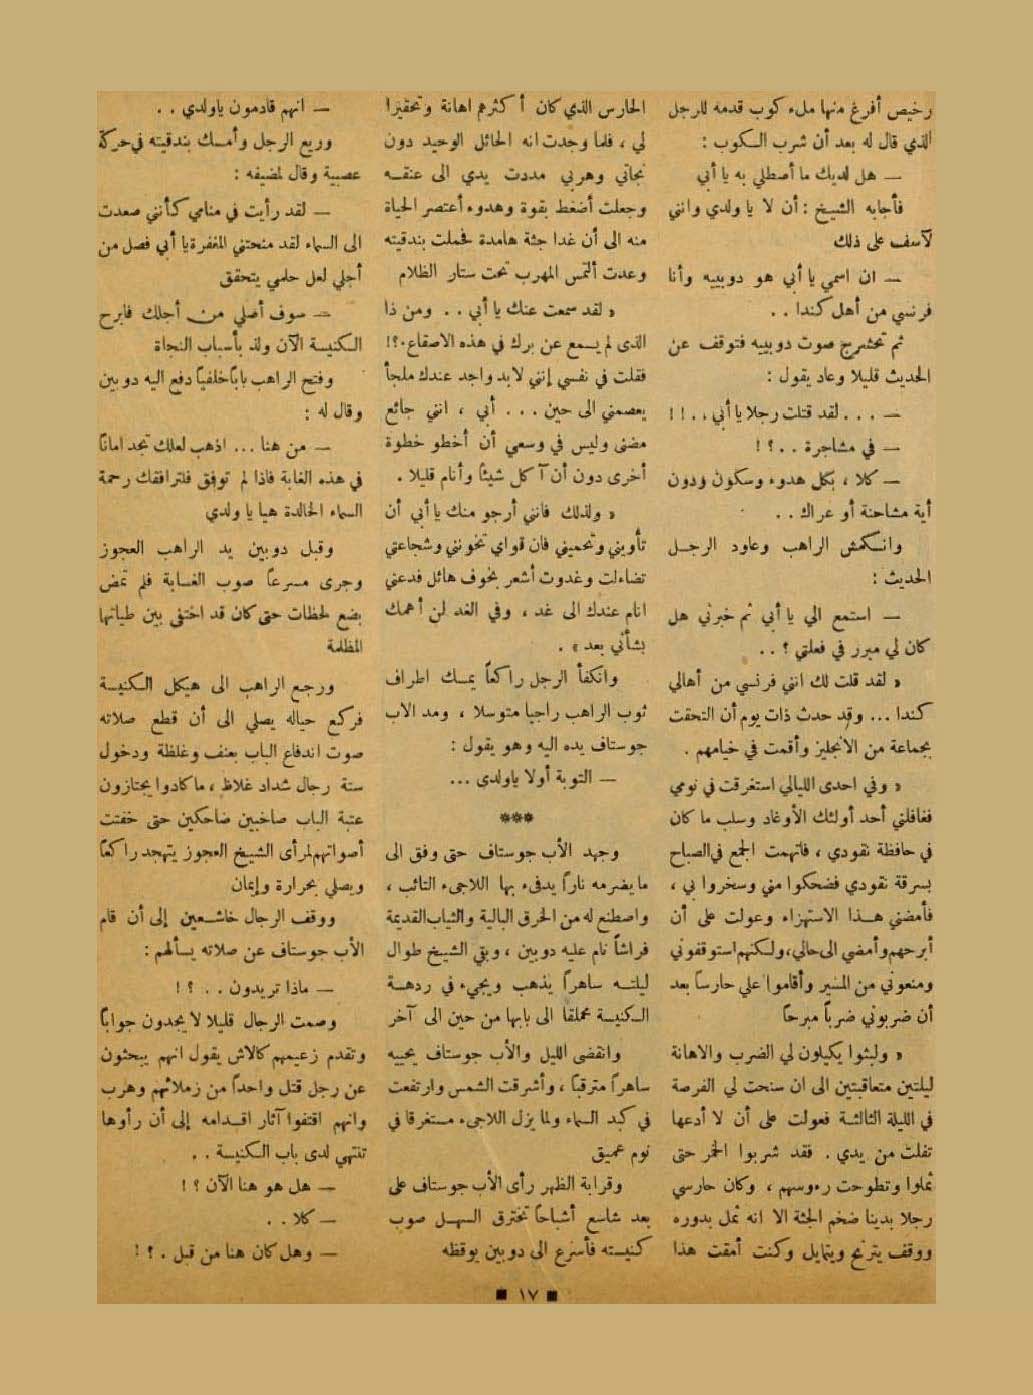 رخيص أفرغ منها ملء كوب قدمه للرجل
الذي قال له بعد أن شرب الكوب :
— هل لديك ما أصطلي به يا أبي
فأجابه الشيخ : أن لا يا ولدي وانني
لآسف على ذلك
— ان اسمي يا أبي هو دوبييه وأنا
فرنسي من أهل كندا . .
ثم تحشرج صوت دوبييه فتوقف عن
الحديث قليلا وعاد يقول :
— . . . لقد قتلت رجلا يا أبي . . ! !
— في مشاجرة . . ؟ !
— كلا ، بكل هدوء وسكون ودون
أية مشاحنة أو عراك . .
وانكمش الراهب وعاود الرجل
الحديث :
— استمع الي يا أبي ثم خبرني هل
كان لي مبرر في فعلتي ؟ . .
« لقد قلت لك انني فرنسي من أهالي
كندا ... وقد حدث ذات يوم أن التحقت
بجماعة من الانجليز وأقمت في خيامهم .
« وفي احدى الليالي استغرقت في نومي
فغافلني أحد أولئك الأوغاد وسلب ما كان
في حافظة نقودي ، فاتهمت الجمع في الصباح
بسرقة نقودي فضحكوا مني وسخروا بي ،
فأمضني هذا الاستهزاء وعولت على أن
أبرحهم وأمضي الى حالي، ولكنهم استوقفوني
ومنعوني من المسير وأقاموا علي حارسا بعد
أن ضربوني ضرباً مبرحاً
« ولبثوا يكيلون لي الضرب والاهانة
ليلتين متعاقبتين الى ان سنحت لي الفرصة
في الليلة الثالثة فعولت على أن لا أدعها
تفلت من يدي . فقد شربوا الخمر حتى
ثملوا وتطوحت رءوسهم ، وكان حارسي
رجلا بدينا ضخم الجثة الا انه ثمل بدوره
ووقف يترنح ويتمايل وكنت أمقت هذا
الحارس الذي كان أكثرهم اهانة وتحقيرا
لي ، فلما وجدت انه الحائل الوحيد دون
نجاتي وهربي مددت يدي الى عنقه
وجعلت أضغط بقوة وهدوء أعتصر الحياة
منه الى أن غدا جثة هامدة فحملت بندقيته
وعدت ألتمس المهرب تحت ستار الظلام
« لقد سمعت عنك يا أبي . . ومن ذا
الذى لم يسمع عن برك في هذه الاصقاع .؟!
فقلت في نفسي إنني لابد واجد عندك ملجأ
يعصمني الى حين . . . أبي ، انني جائع
مضنى وليس في وسعي أن أخطو خطوة
أخرى دون أن آكل شيئا وأنام قليلا .
« ولذلك فانني أرجو منك يا أبي أن
تأويني وتحميني فان قواي تخونني وشجاعتي
تضاءلت وغدوت أشعر بخوف هائل فدعني
انام عندك الى غد ، وفي الغد لن أهمك
بشأني بعد » .
وانكفأ الرجل راكعاً يمسك اطراف
ثوب الراهب راجيا متوسلا ، ومد الاب
جوستاف يده اليه وهو يقول :
— التوبة أولا ياولدى ...
***
وجهد الأب جوستاف حتى وفق الى
ما يضرمه ناراً يدفىء بها اللاجىء التائب ،
واصطنع له من الخرق البالية والثياب القديمة
فراشاً نام عليه دوبين ، وبقي الشيخ طوال
ليلته ساهراً يذهب ويجيء في ردهة
الكنيسة محملقا الى بابها من حين الى آخر
وانقضى الليل والأب جوستاف يحييه
ساهراً مترقبا ، وأشرقت الشمس وارتفعت
في كبد السماء ولما يزل اللاجىء مستغرقا في
نوم عميق
وقرابة الظهر رأى الأب جوستاف على
بعد شاسع أشباحاً تخترق السهل صوب
كنيسته فأسرع الى دوبين يوقظه
— انهم قادمون ياولدي . .
وريع الرجل وأمسك بندقيته في حركة
عصبية وقال لمضيفه :
— لقد رأيت في منامي كأنني صعدت
الى السماء لقد منحتني المغفرة يا أبي فصل من
أجلي لعل حلمي يتحقق
— سوف أصلي من أجلك فابرح
الكنيسة الآن ولذ بأسباب النجاة
وفتح الراهب باباً خلفياً دفع اليه دوبين
وقال له :
— من هنا ... اذهب لعلك تجد امانا
في هذه الغابة فاذا لم توفق فلترافقك رحمة
السماء الخالدة هيا يا ولدي
وقبل دوبين يد الراهب العجوز
وجرى مسرعاً صوب الغابة فلم تمض
بضع لحظات حتى كان قد اختفى بين طياتها
المظلمة
ورجع الراهب الى هيكل الكنيسة
فركع حياله يصلي الى أن قطع صلاته
صوت اندفاع الباب بعنف وغلظة ودخول
ستة رجال شداد غلاظ ، ما كادوا يجتازون
عتبة الباب صاخبين ضاحكين حتى خفتت
أصواتهم لمرأى الشيخ العجوز يتهجد راكعاً
ويصلي بحرارة وإيمان
ووقف الرجال خاشعين إلى أن قام
الأب جوستاف عن صلاته يسألهم :
— ماذا تريدون . . ؟ !
وصمت الرجال قليلا لا يجدون جواباً
وتقدم زعيمهم كالاش يقول انهم يبحثون
عن رجل قتل واحداً من زملائهم وهرب
وانهم اقتفوا آثار اقدامه إلى أن رأوها
تنتهي لدى باب الكنيسة . .
— هل هو هنا الآن ؟ !
— كلا . .
— وهل كان هنا من قبل . ؟ !
■ ١٧ ■